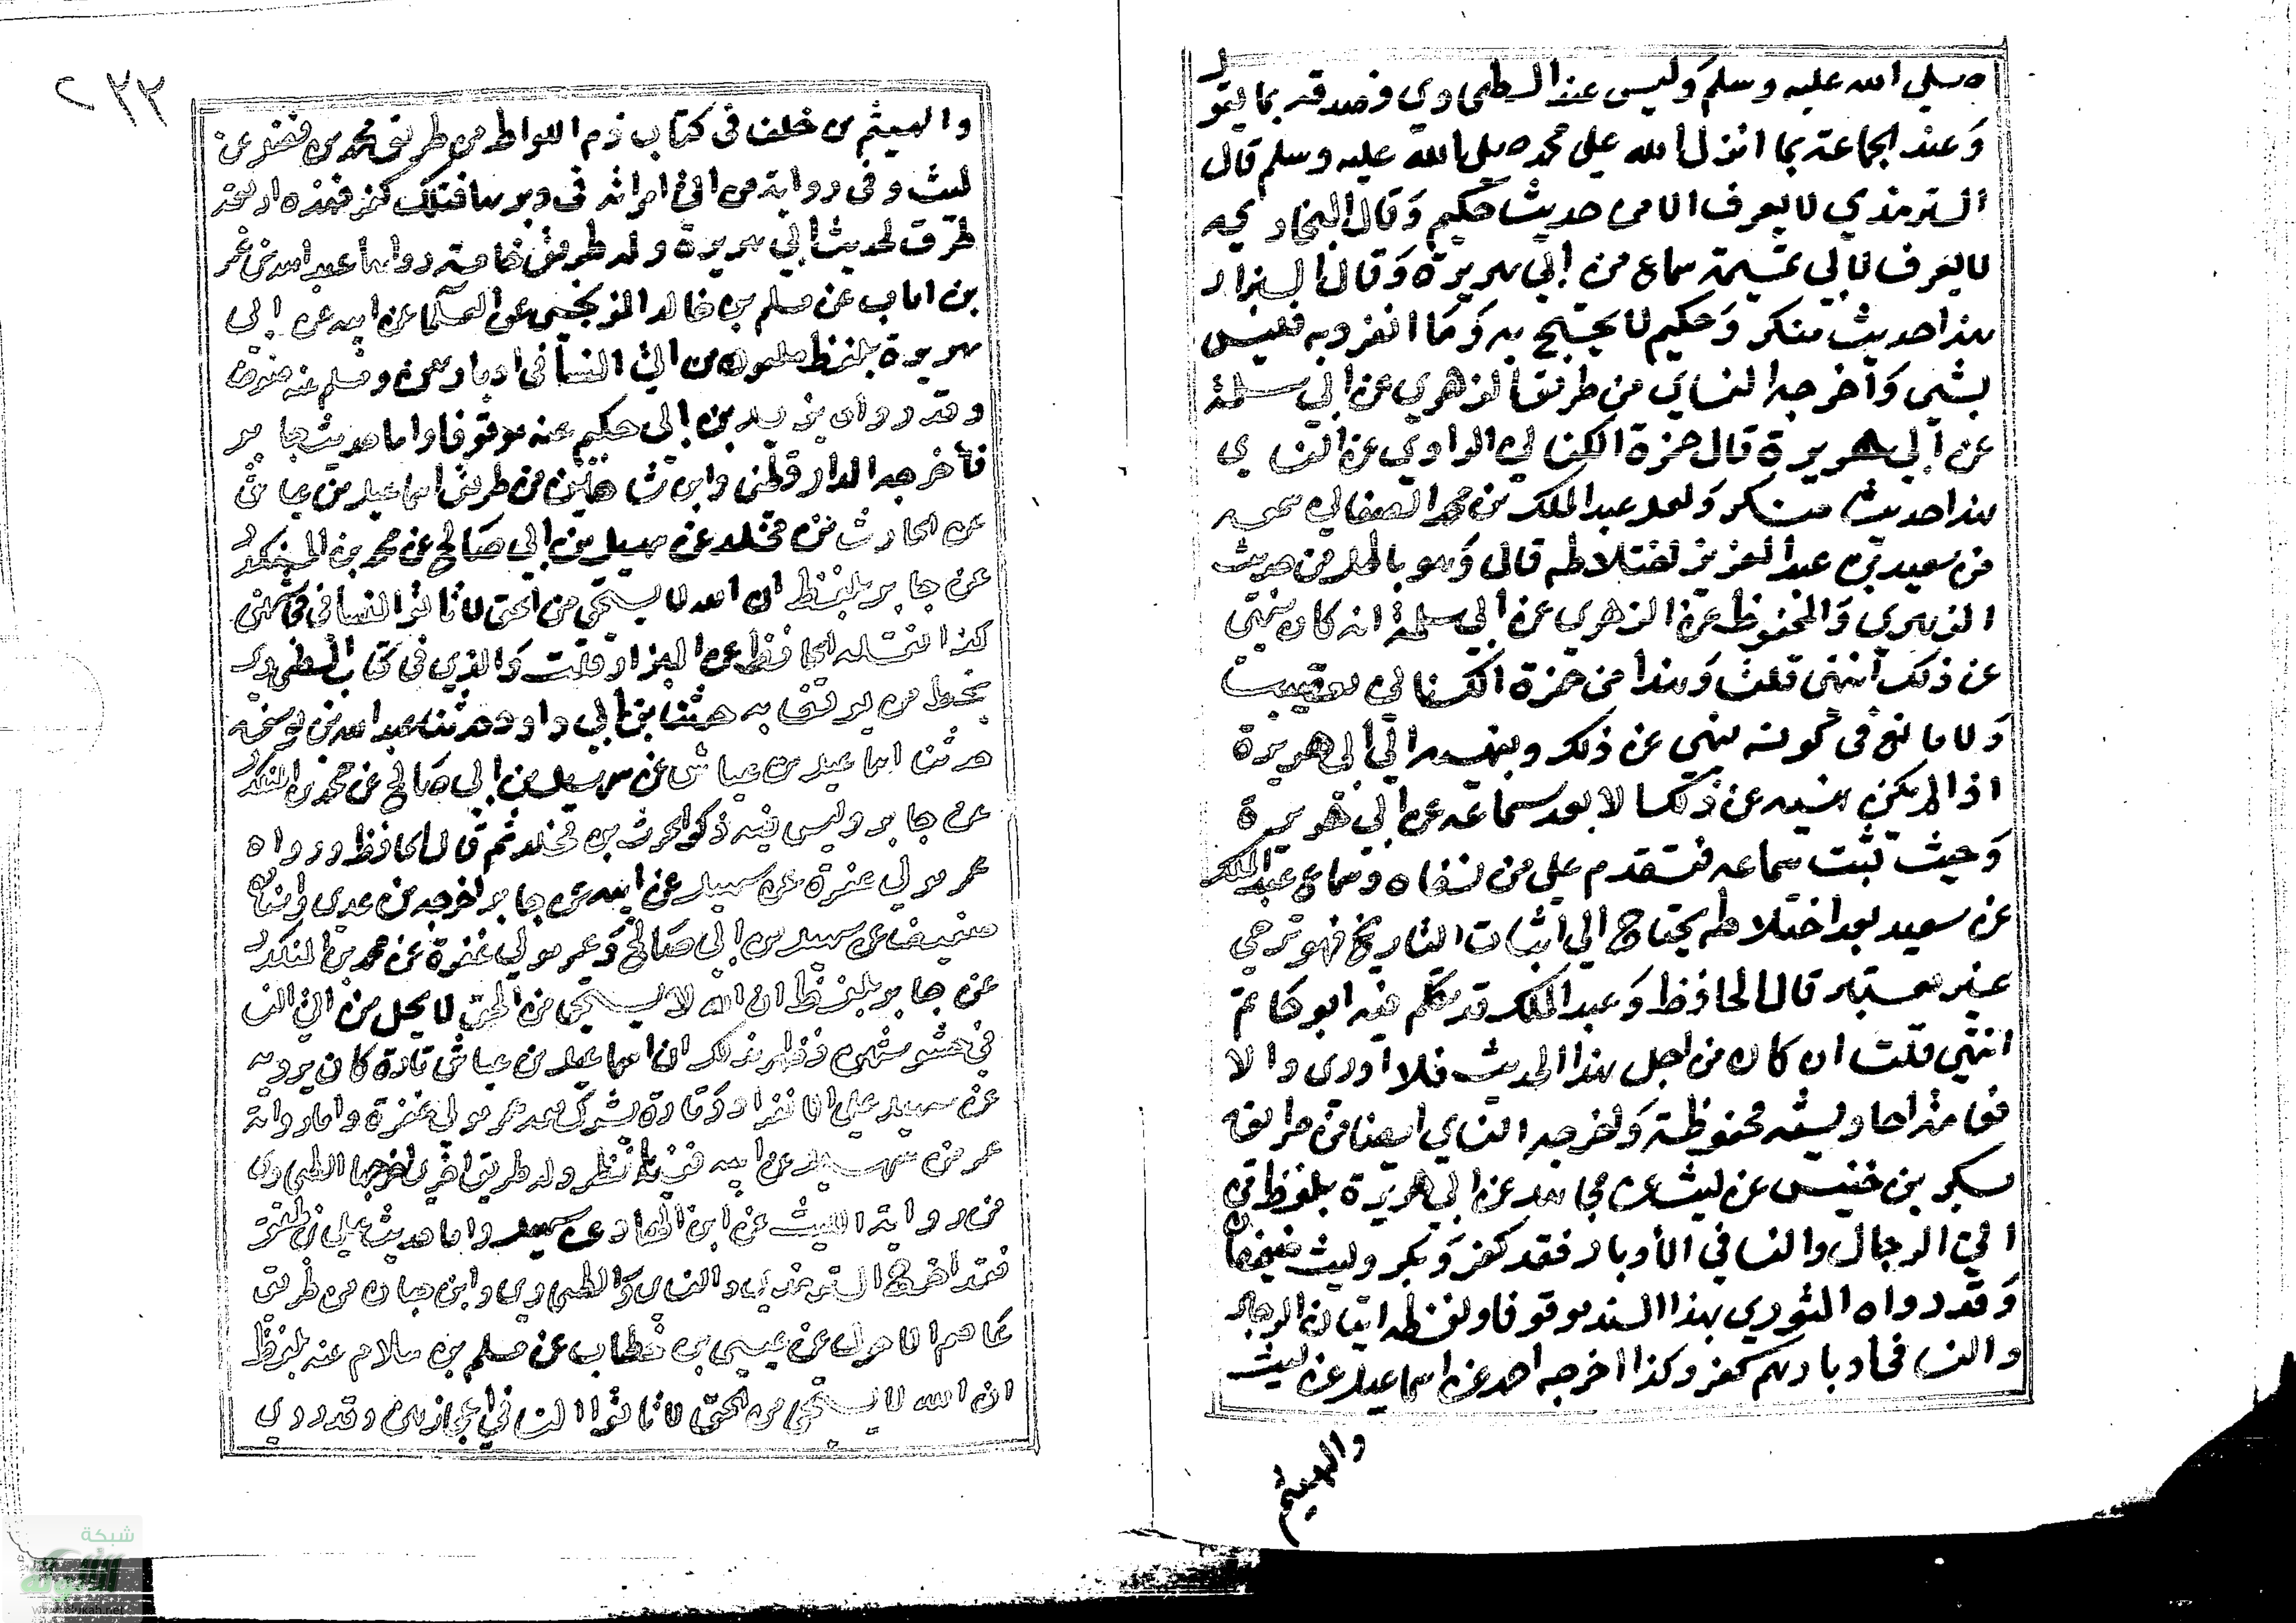 صلي الله عليه وسلم وليس عند الطحاوي فصدقه بما يقول
وعند الجماعة بما انزل الله علي محمد صلي الله عليه وسلم قال
الترمذي لا يعرف الا من حديث حكيم وقال البخاري
لا يعرف لابي تميمة سماع من ابي هريرة وقال البزار
هذا حديث منكر وحكيم لا يحتج به وما انفرد به فليس
بشي وأخرجه النساي من طريق الزهري عن ابي سلمة
عن أبي هريرة قال حمزة الكناني الراوي عن النساي
هذا حديث منكر ولعل عبد الملك بن محمد الصنعاني سمعه
من سعيد بن عبد العزيز اختلاطه قال وهو باطل من حديث
الزهري والمحفوظ عن الزهري عن ابي سلمة انه كان ينهي
عن ذلك انتهي قلت وهذا من حمزة الكناني
ولا مانع في كونه ينهي عن ذلك وينميه الي ابي هريرة
اذا لم يكن نهيه عن ذلك الا بعد سماعه عن ابي هريرة
وحيث ثبت سماعه فتقدم علي من نفاه وسماع عبد الملك
عن سعيد بعد اختلاطه يحتاج الي اثبات التاريخ فهو ترجي
غير معتبر قال الحافظ وعبد الملك قد تكلم فيه ابو حاتم
انتهي قلت ان كان من اجل هذا الحديث فلا أدري والا
محفوظة وأخرجه النساي ايضا من طريق
بكر بن خنيس عن ليث عن مجاهد عن ابي هريرة بلفظ من
اتي الرجال والنسا في الأدبار فقد كفر وبكر وليث ضعيفان
وقد رواه الثوري بهذا السند موقوفا ولفظه اتيان الرجال
والنسا في ادبارهم كفر وكذا اخرجه احمد عن اسماعيل عن ليث
والهيثم
٢٣٣
والهيثم بن خلف في كتاب ذم اللواط من طريق محمد بن فضيل عن
ليث وفي رواية من اتي امراته في دبرها فتلك كفرة فهذه اربعة
طرق لحديث ابي هريرة وله طريق خامسة رواها عبد الله بن عمر
بن ابان عن مسلم بن خالد الزنجي عن العلا عن ابيه عن ابي
هريرة بلفظ ملعون من اتي النسا في ادبارهن ومسلم فيه ضعف
وقد رواه يزيد بن ابي حكيم عنه موقوفا واما حديث جابر
فأخرجه الدارقطني وابن شاهين من طريق اسماعيل بن عياش
عن الحارث بن مخلد عن سهيل بن ابي صالح عن محمد بن المنكدر
عن جابر بلفظ ان الله لا يستحي من الحق لا تاتوا النسا في محاشهن
كذا نقله الحافظ عن البزار قلت والذي في كتاب الطحاوي
بخط من يوثق به حدثنا ابن ابي داود حدثنا عبد الله بن يوسف
حدثنا اسماعيل بن عياش عن سهيل بن ابي صالح عن محمد بن المنكدر
عن جابر وليس فيه ذكر الحرث بن مخلد ثم قال الحافظ ورواه
عمر مولي غفرة عن سهيل عن ابيه عن جابر اخرجه بن عدي واسناده
ضعيف عن سهيل بن ابي صالح وعمر مولي غفرة عن محمد بن المنكدر
عن جابر بلفظ ان الله لا يستحي من الحق لا يحل من اتي النسا
في حشوشهن فظهر بذلك ان اسماعيل بن عياش تارة كان يرويه
عن سهيل علي الانفراد وتارة يشرك معه عمر مولي غفرة واما رواية
عمر عن سهيل عن ابيه ففيها نظر وله طريق اخري اخرجها الطحاوي
من رواية الليث عن ابن الهاد عن سهيل واما حديث علي بن طلق
فقد اخرجه الترمذي والنساي والطحاوي وابن حبان من طريق
عاصم الاحول عن عيسي بن حطان عن مسلم بن سلام عنه بلفظ
ان الله لا يستحي من الحق لا تاتوا النسا في اعجازهن وقد روي
شبكة
الألوكة
www.alukah.net